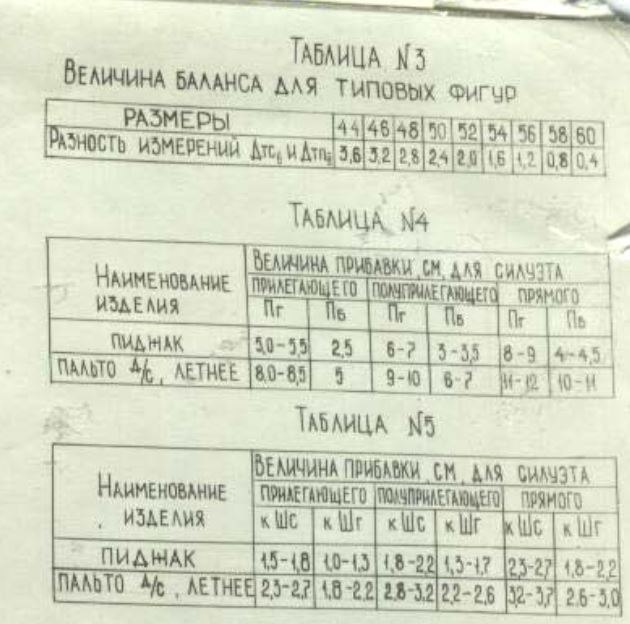 ТАБЛИЦА N3
ВЕЛИЧИНА БАЛАНСА ДЛЯ ТИПОВЫХ ФИГУР
РАЗМЕРЫ 44 46 48 50 52 54 56 58 60
РАЗНОСТЬ ИЗМЕРЕНИЙ Дтс₆ и Дтп₆ 3,6 3,2 2,8 2,4 2,0 1,6 1,2 0,8 0,4
ТАБЛИЦА N4
НАИМЕНОВАНИЕ ИЗДЕЛИЯ
ВЕЛИЧИНА ПРИБАВКИ, СМ, ДЛЯ СИЛУЭТА
ПРИЛЕГАЮЩЕГО ПОЛУПРИЛЕГАЮЩЕГО ПРЯМОГО
Пг Пб Пг Пб Пг Пб
ПИДЖАК 5,0-5,5 2,5 6-7 3-3,5 8-9 4-4,5
ПАЛЬТО Д/С, ЛЕТНЕЕ 8,0-8,5 5 9-10 6-7 11-12 10-11
ТАБЛИЦА N5
НАИМЕНОВАНИЕ ИЗДЕЛИЯ
ВЕЛИЧИНА ПРИБАВКИ, СМ, ДЛЯ СИЛУЭТА
ПРИЛЕГАЮЩЕГО ПОЛУПРИЛЕГАЮЩЕГО ПРЯМОГО
к Шс к Шг к Шс к Шг к Шс к Шг
ПИДЖАК 1,5-1,8 1,0-1,3 1,8-2,2 1,3-1,7 2,3-2,7 1,8-2,2
ПАЛЬТО Д/С, ЛЕТНЕЕ 2,3-2,7 1,8-2,2 2,8-3,2 2,2-2,6 3,2-3,7 2,6-3,0